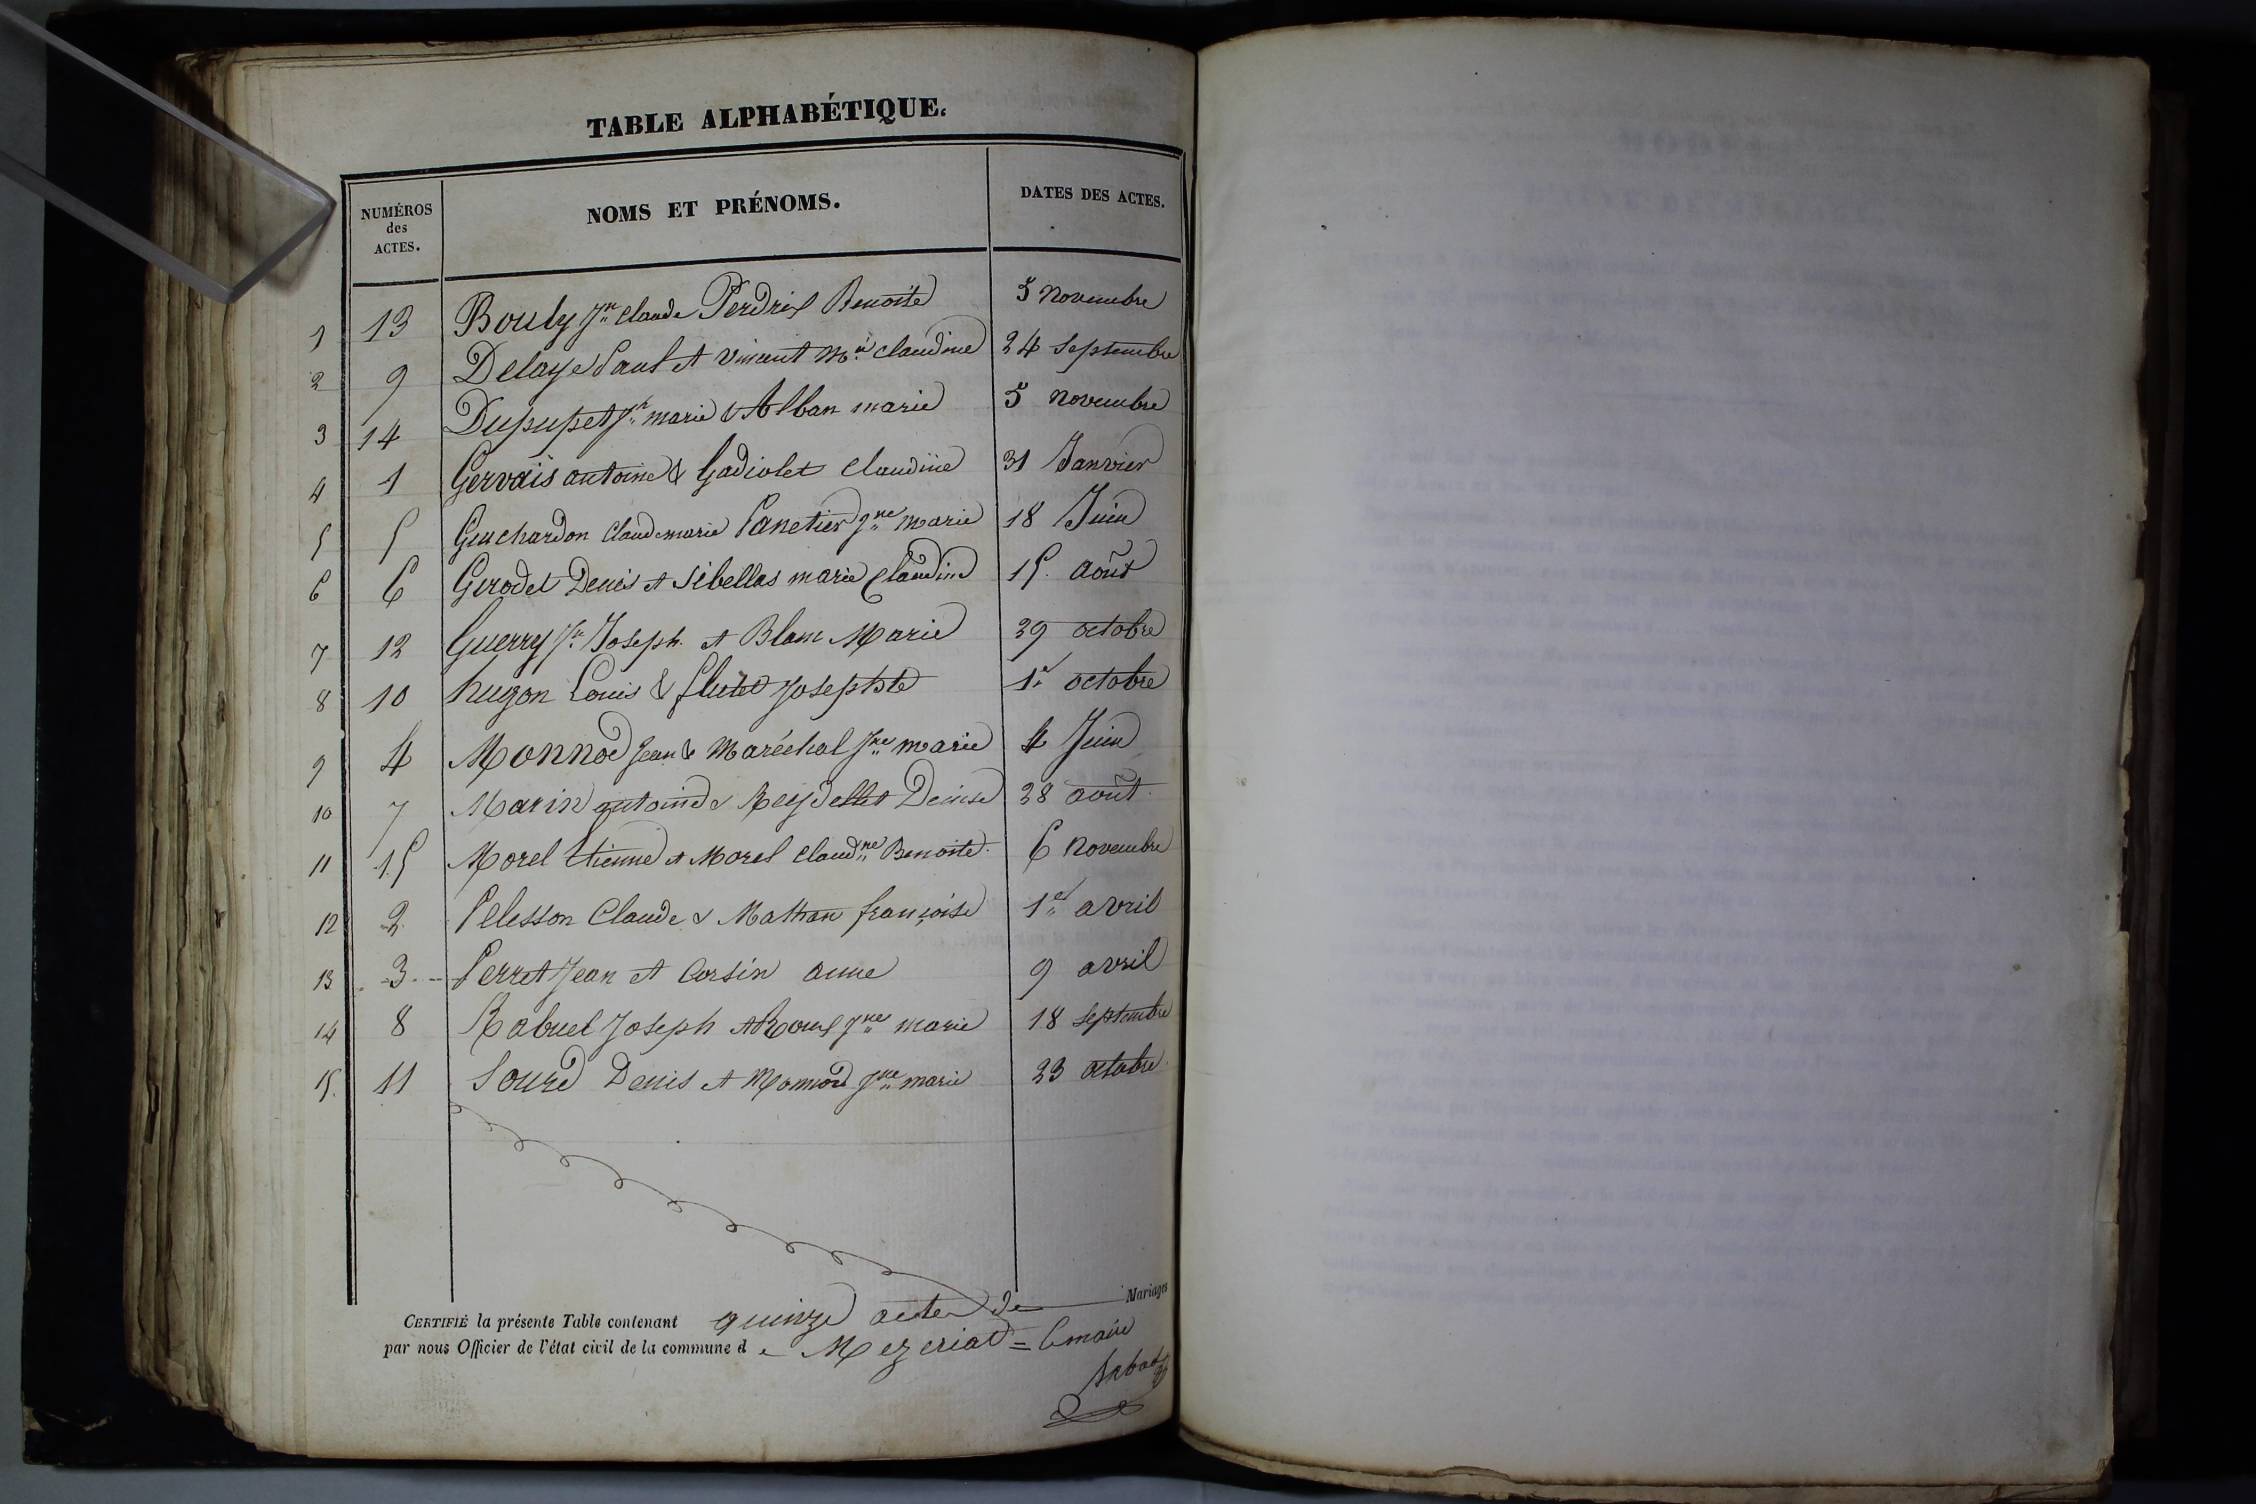 TABLE ALPHABÉTIQUE.
NUMÉROS des ACTES. NOMS ET PRÉNOMS. DATES DES ACTES.
1 13 Bouly Jn claude Perdrix Benoite 5 Novembre
2 9 Delaye Paul et Vincent Mie claudine 24 Septembre
3 14 Dupupet Jh marie & Alban marie 5 Novembre
4 1 Gervais antoine & Gadiolet Claudine 31 Janvier
5 5 Guichardon Claude marie Panetier Jne marie 18 Juin
6 6 Girodet Denis et Sibellas marie Claudine 15 août
7 12 Guerry Jn Joseph et Blanc Marie 29 octobre
8 10 hugon Louis & flutet Josephte 1r octobre
9 4 Monnod Jean & Maréchal Jne marie 4 Juin
10 7 Marin antoine & Reydellet Denise 28 août
11 15 Morel Etienne et Morel Claudne Benoite 6 Novembre
12 2 Pelesson Claude & Mathan françoise 1er avril
13 3 Perret Jean et Corsin anne 9 avril
14 8 Rabuel Joseph et Roux Jne marie 18 Septembre
15 11 Sourd Denis et Monnod Jne marie 23 octobre
CERTIFIÉ la présente Table contenant quinze actes de Mariages
par nous Officier de l'état civil de la commune de Mezeriat = Le maire